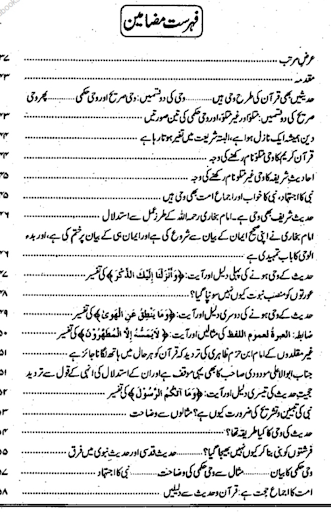 فہرست مضامین
عرض مرتب ۳۷
مقدمہ ۴۳
حدیثیں بھی قرآن کی طرح وحی ہیں ...... وحی کی دو قسمیں: وحی صریح اور وحی حکمی ...... پھر وحی
صریح کی دو قسمیں: متلو اور غیر متلو، اور وحی حکمی کی تین صورتیں ۴۳
دین ہمیشہ ایک نازل ہوا ہے، البتہ شریعت میں تغیر ہوتا رہا ہے ۴۴
قرآن کریم کا وحی متلو نام رکھنے کی وجہ ۴۴
احادیث شریفہ کا وحی غیر متلو نام رکھنے کی وجہ ۴۵
نبی کا اجتہاد، نبی کا خواب اور اجماع امت بھی وحی ہیں ۴۵
حدیث شریف بھی وحی ہے۔ امام بخاری رحمہ اللہ کے طرز عمل سے استدلال ۴۶
امام بخاری نے اپنی صحیح ایمان کے بیان سے شروع کی ہے اور ایمان ہی کے بیان پر ختم کی ہے، اور بدء
الوحی کا باب تمہیدی ہے ۴۶
حدیث کے وحی ہونے کی پہلی دلیل اور آیت: ﴿وَأَنْزَلْنَا إِلَيْكَ الذِّكْرَ﴾ کی تفسیر ۴۷
عورتوں کو منصب نبوت کیوں نہیں سونپا گیا؟ ۴۸
حدیث کے وحی ہونے کی دوسری دلیل اور آیت: ﴿وَمَا يَنْطِقُ عَنِ الْهَوَى﴾ کی تفسیر ۴۹
ضابطہ: العبرة لعموم اللفظ کی مثالیں اور آیت: ﴿لَا يَمَسُّهُ إِلَّا الْمُطَهَّرُونَ﴾ کی تفسیر ۵۰
غیر مقلدوں کے امام ابن حزم ظاہری کی تردید کہ قرآن کو ہر حال میں ہاتھ لگانا جائز ہے ۵۱
جناب ابوالاعلی مودودی صاحب کا بھی یہی موقف ہے اور ان کے استدلال کی انہی کے قول سے تردید ۵۱
حجیت حدیث کی تیسری دلیل اور آیت: ﴿وَمَا آتَاكُمُ الرَّسُولُ﴾ کی تفسیر ۵۲
نبی کی تبیین وتشریح کی ضرورت کیوں ہے؟ مثالوں سے وضاحت ۵۳
حدیث کی وحی کا کیا طریقہ تھا؟ ۵۴
فرشتوں کو نبی بنا کر کیوں نہیں بھیجا گیا؟ ...... حدیث قدسی اور حدیث نبوی میں فرق ۵۵
وحی حکمی کا بیان ...... مثال سے وحی حکمی کی وضاحت ...... نبی کا اجتہاد ۵۷
امت کا اجماع حجت ہے: قرآن وحدیث سے دلیلیں ۵۸